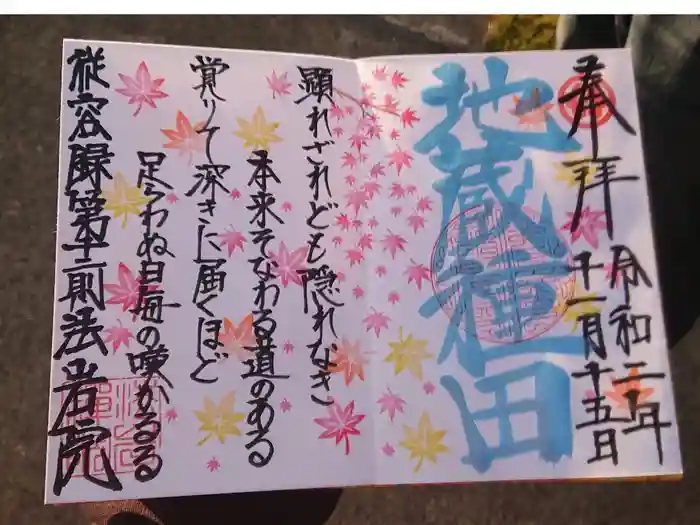 奉拝
令和二年
十一月十五日
地蔵種田
顕れざれども隠れなき
本来そなわる道のある
覚りて深きに届くほど
足らわぬ日毎の咲かるる
従容録第十二則法岩院